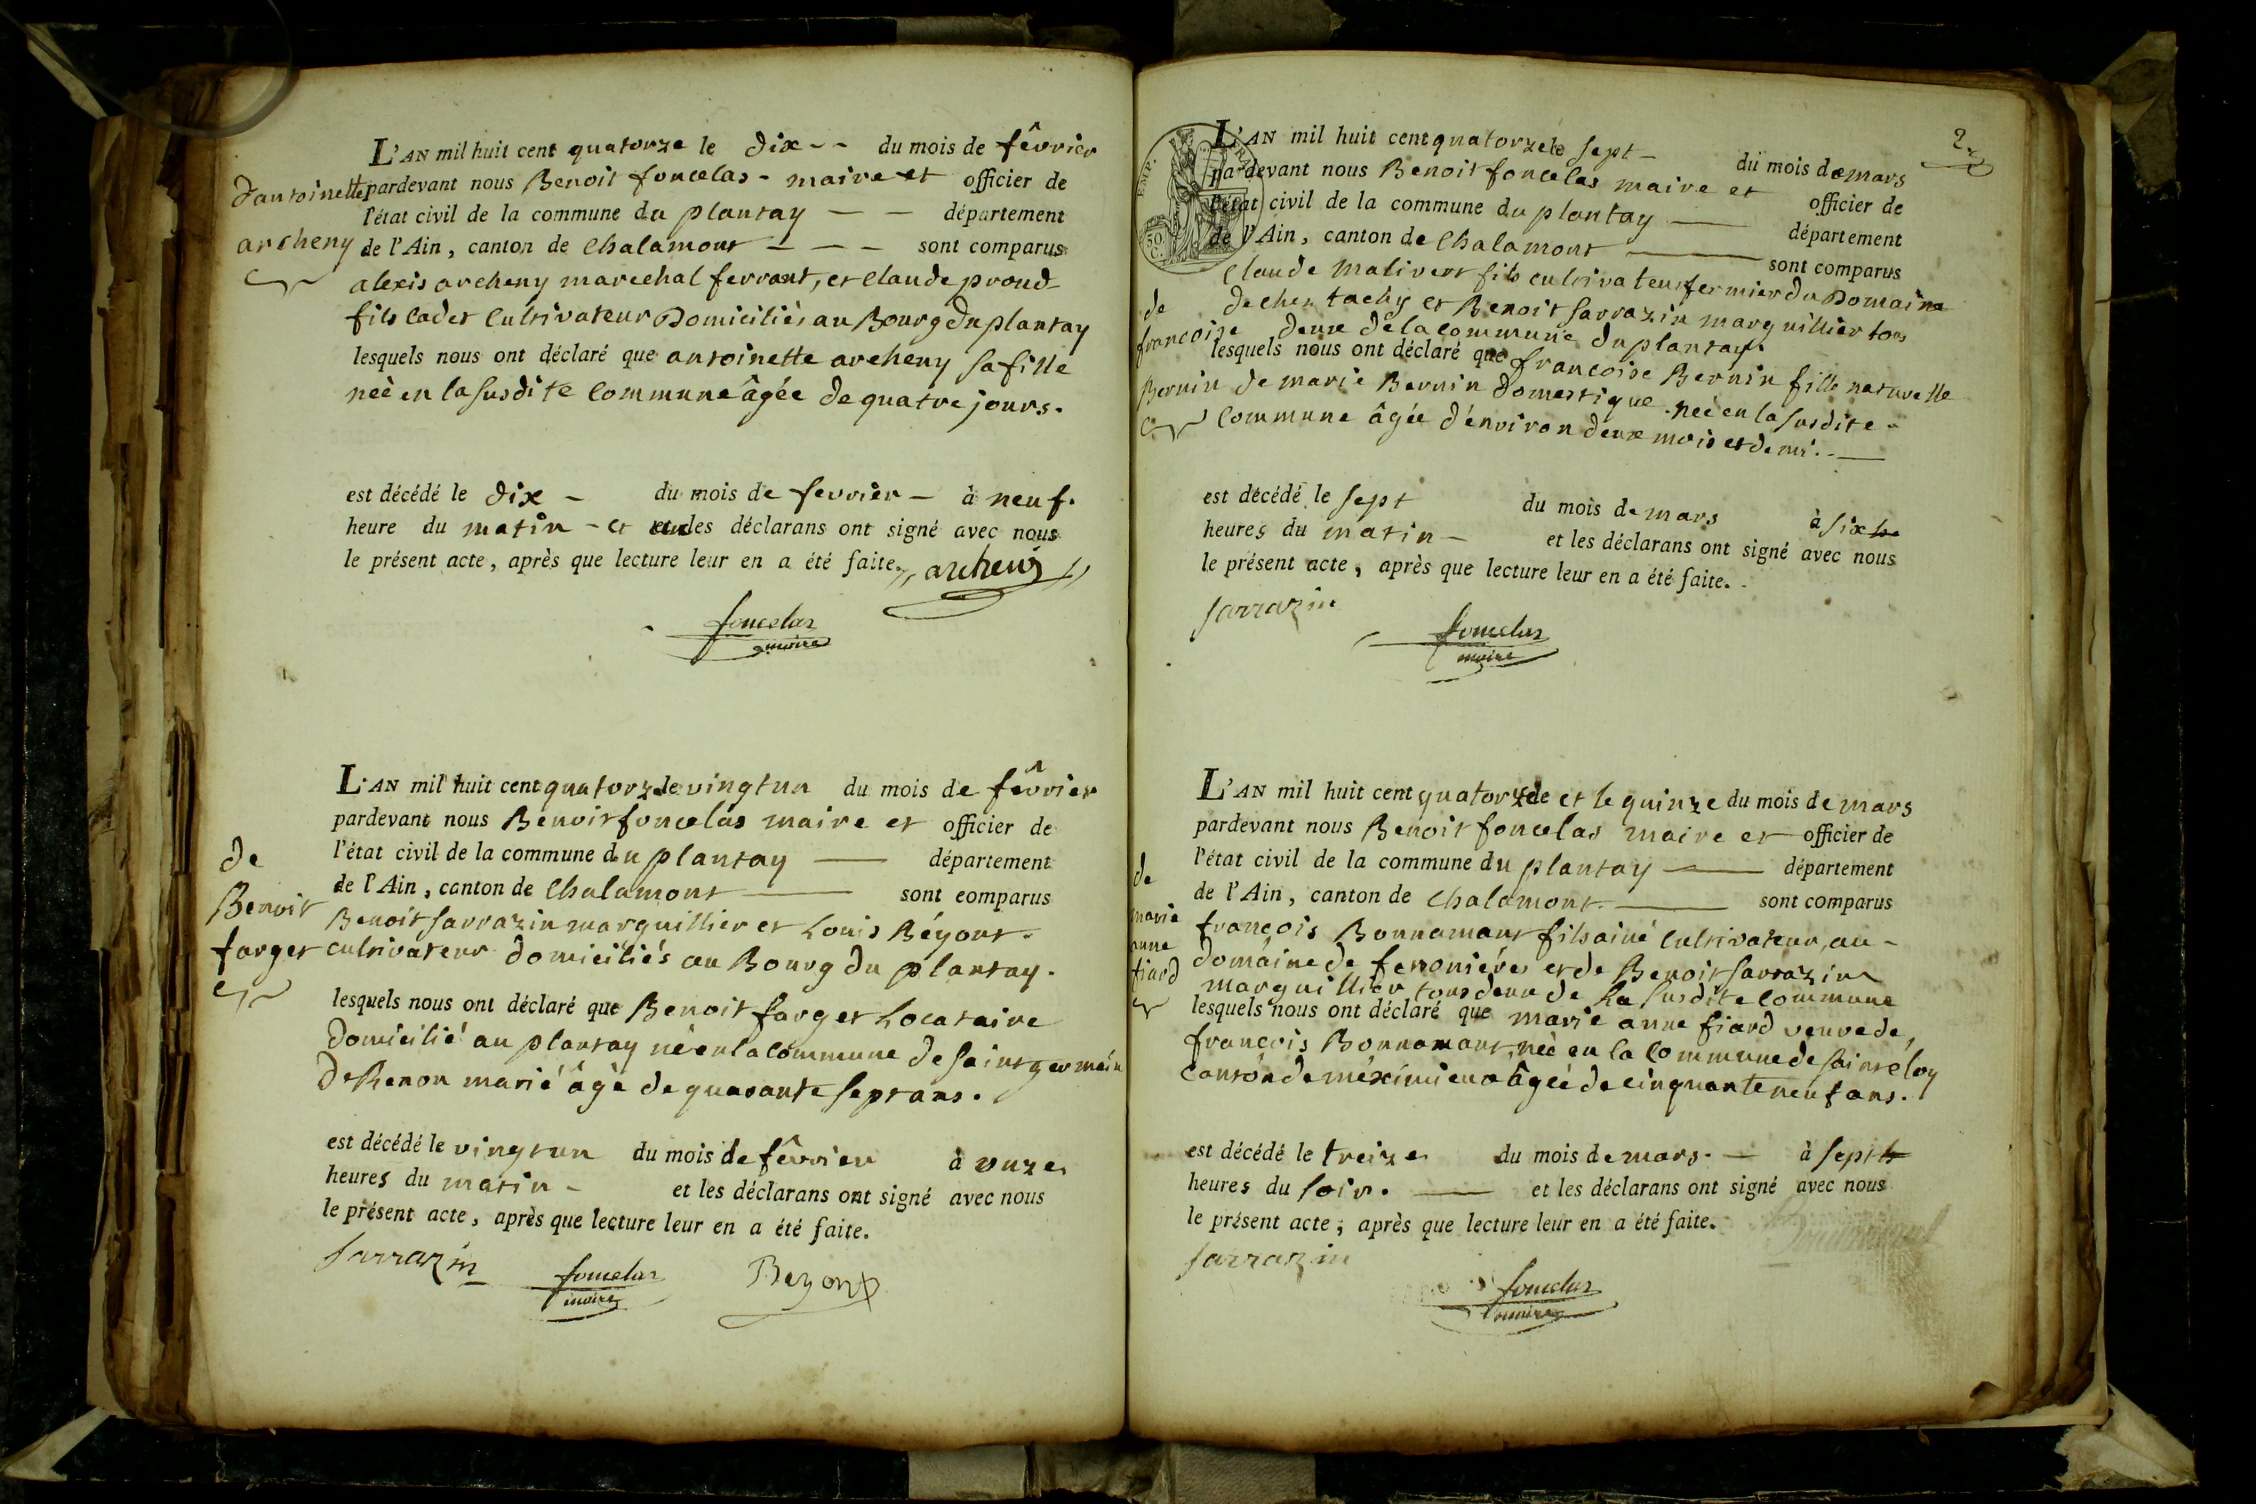 L'AN mil huit cent quatorze le dix -- du mois de fêvrier
d'antoinette
pardevant nous Benoit foncelas - maire et officier de
l'état civil de la commune du plantay — — département
archeny
de l'Ain, canton de Chalamont — — — sont comparus
alexis archeny marechal ferrant, et Claude proud
fils cadet Cultivateur Domiciliès au Bourg du plantay
lesquels nous ont déclaré que antoinette archeny sa fille
neè en la susdite Commune âgée de quatre jours.
est décédé le dix - du mois de fevrier - à neuf.
heure du matin - et les déclarans ont signé avec nous
le présent acte, après que lecture leur en a été faite. archeny
foncelas
maire
L'AN mil huit cent quatorze le vingt un du mois de fêvrier
pardevant nous Benoit foncelas maire et officier de
de
l'état civil de la commune du plantay — département
de l'Ain, canton de Chalamont — sont comparus
Benoit
Benoit Sarrazin marguillier et Louis Béyont
farget
cultivateur domiciliés au Bourg du plantay.
lesquels nous ont déclaré que Benoit farget Locataire
Domicilié au plantay né en la commune de saint germain
De Renon marié âgè de quarante sept ans.
est décédé le vingt un du mois de fêvrier à onze
heures du matin - et les déclarans ont signé avec nous
le présent acte, après que lecture leur en a été faite.
Sarrazin foncelas Beyont
maire
2
L'AN mil huit cent quatorze le sept - du mois de mars
pardevant nous Benoit foncelas maire et officier de
l'état civil de la commune du plantay — département
de l'Ain, canton de Chalamont — sont comparus
EMP. FRA
50 C.
Claude Malivert fils cultivateur fermier du Domaine
de chez tachy et Benoit Sarrazin marguillier tous
deux de la commune du plantay.
de
francoise
Bernin
lesquels nous ont déclaré que francoise Bernin fille naturelle
de marie Bernin Domestique neè en la susdite
Commune âgée d'énviron deux mois et demi. —
est décédé le sept du mois de mars à six he
heures du matin - et les déclarans ont signé avec nous
le présent acte, après que lecture leur en a été faite.
sarrazin
foncelas
maire
L'AN mil huit cent quatorze le et le quinze du mois de mars
pardevant nous Benoit foncelas maire et officier de
l'état civil de la commune du plantay — département
de l'Ain, canton de Chalamont. — sont comparus
de
marie
anne
fiard
françois Bonnamant fils ainé Cultivateur, au -
domaine de feroniéres et de Benoit Sarrazin
marguillier tous deux de La susdite commune
lesquels nous ont déclaré que marie anne fiard veuve de,
françois Bonnamant, neè en la Commune de saint eloy
Canton de méximieux âgeè de cinquante neuf ans.
est décédé le treize du mois de mars. — à sept h
heures du soir. — et les déclarans ont signé avec nous
le présent acte, après que lecture leur en a été faite.
sarrazin
foncelas
maire